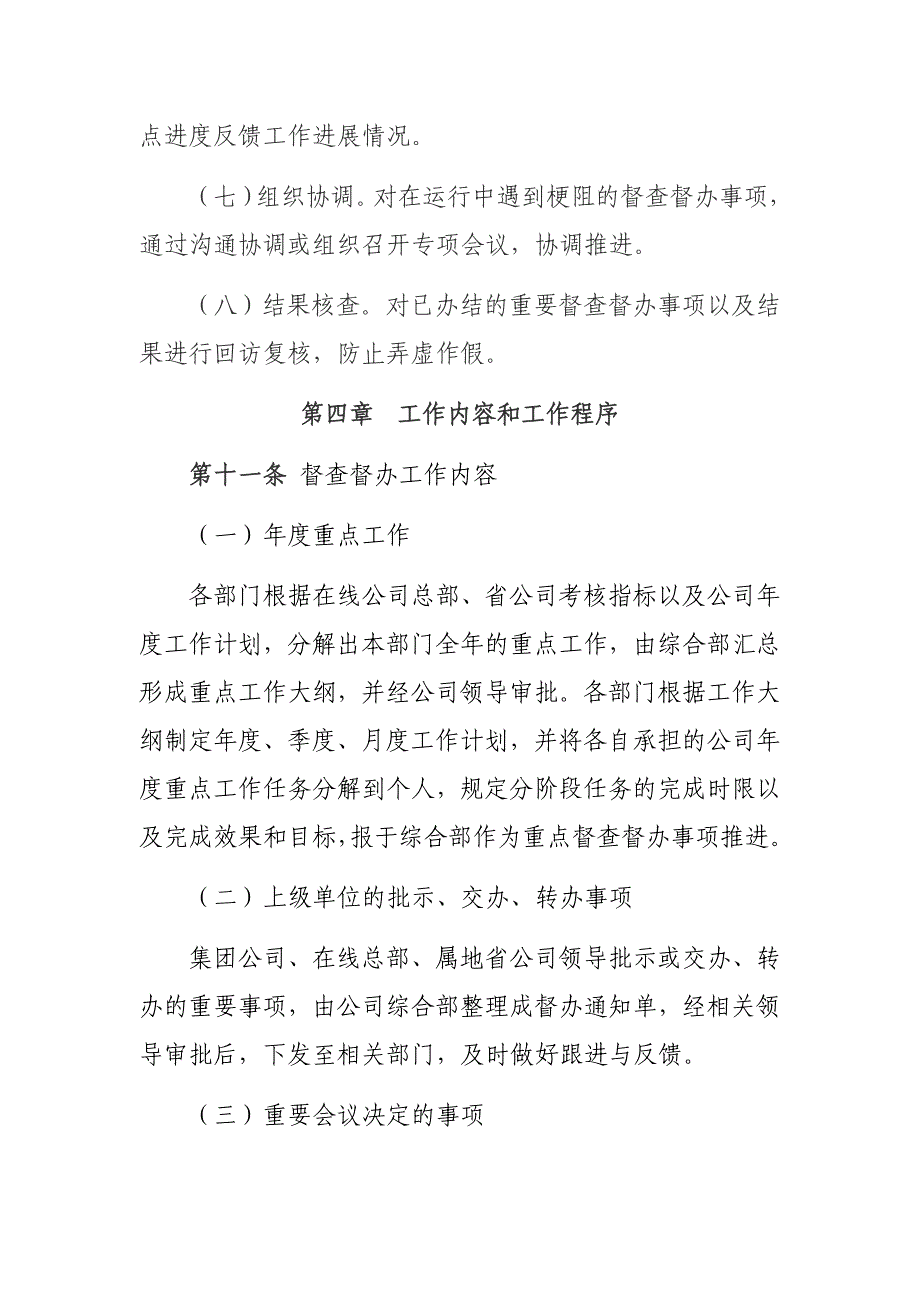 点进度反馈工作进展情况。
（七）组织协调。对在运行中遇到梗阻的督查督办事项，
通过沟通协调或组织召开专项会议，协调推进。
（八）结果核查。对已办结的重要督查督办事项以及结
果进行回访复核，防止弄虚作假。
第四章　工作内容和工作程序
第十一条 督查督办工作内容
（一）年度重点工作
各部门根据在线公司总部、省公司考核指标以及公司年
度工作计划，分解出本部门全年的重点工作，由综合部汇总
形成重点工作大纲，并经公司领导审批。各部门根据工作大
纲制定年度、季度、月度工作计划，并将各自承担的公司年
度重点工作任务分解到个人，规定分阶段任务的完成时限以
及完成效果和目标，报于综合部作为重点督查督办事项推进。
（二）上级单位的批示、交办、转办事项
集团公司、在线总部、属地省公司领导批示或交办、转
办的重要事项，由公司综合部整理成督办通知单，经相关领
导审批后，下发至相关部门，及时做好跟进与反馈。
（三）重要会议决定的事项